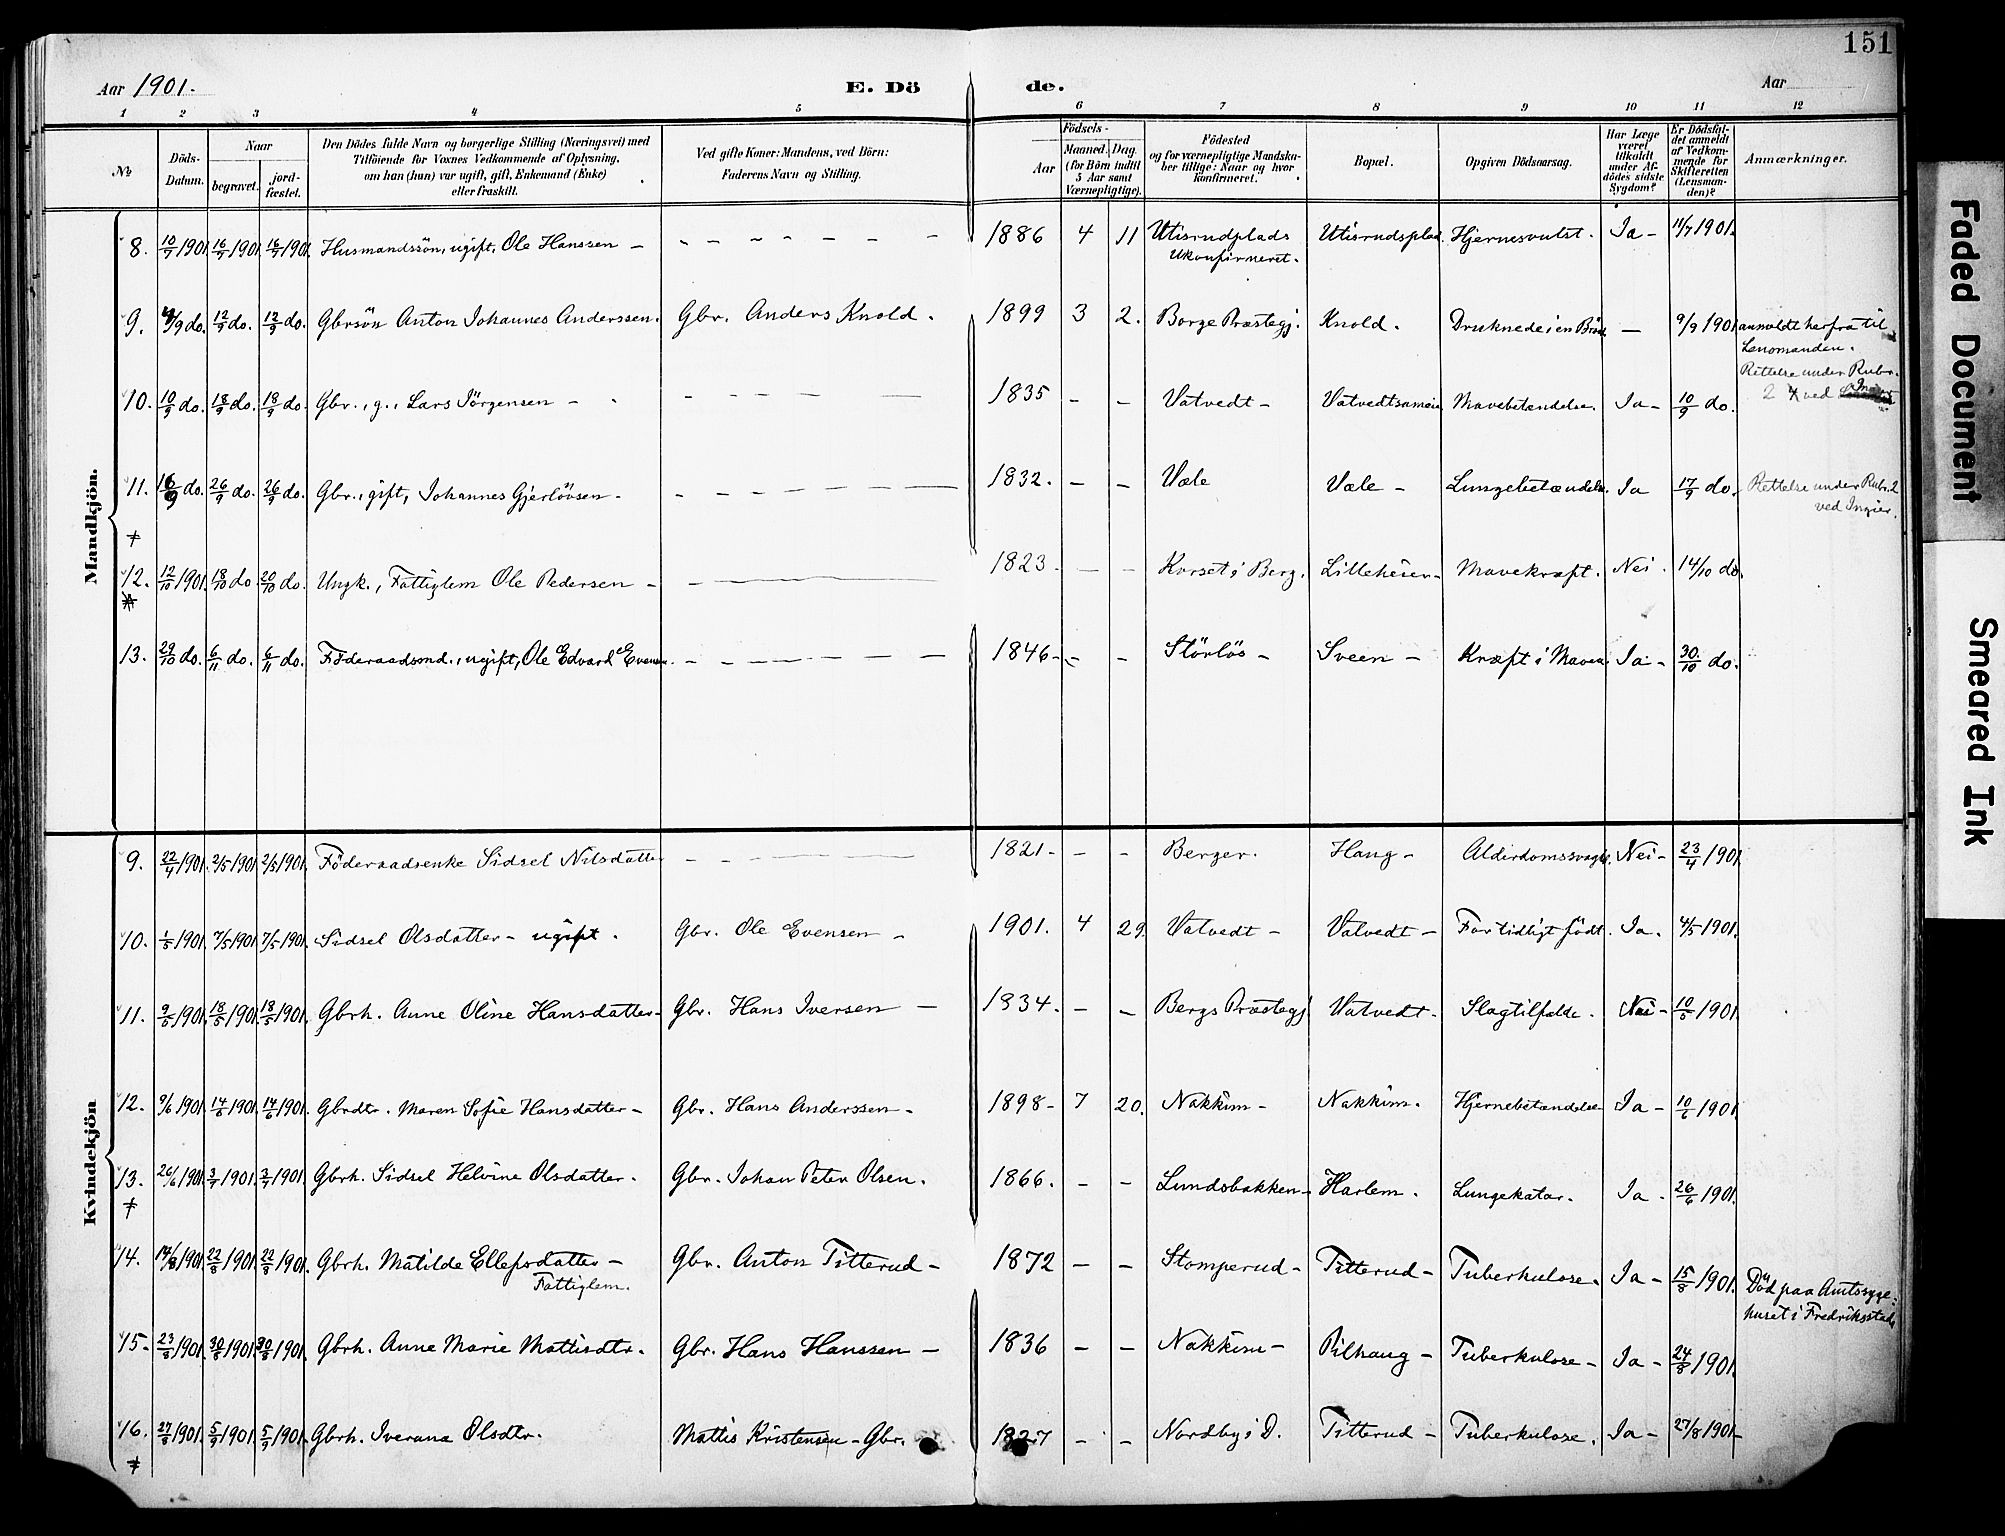 151
Aar 1901.
E. Dö
de.
Aar
1 2 3 4 5 6 7 8 9 10 11 12
№
Döds-Datum.
Naar
begravet.
jord-fæstet.
Den Dödes fulde Navn og borgerlige Stilling (Næringsvei) med
Tilföiende for Voxnes Vedkommende af Oplysning,
om han (hun) var ugift, gift, Enkemand (Enke)
eller fraskilt.
Ved gifte Koner: Mandens, ved Börn:
Faderens Navn og Stilling.
Födsels-
Aar
Maaned. Dag.
(for Börn indtil
5 Aar samt
Værnepligtige).
Födested
og for værnepligtige Mandska-
ber tillige: Naar og hvor
konfirmeret.
Bopæl.
Opgiven Dödsaarsag.
Har Læge
været
tilkaldt
under Af-
dödes sidste
Sygdom?
Er Dödsfal-
det anmeldt
af Vedkom-
mende for
Skifteretten
(Lensman-
den)?
Anmærkninger.
Mandkjön.
8. 10/7 1901 16/7 1901 16/7 1901 Husmandssön, ugift, Ole Hanssen – 1886 4 11 Utisrudplads Utisrudsplad. Hjernesvulst. Ja – 11/7 1901.
Ukonfirmeret.
9. /9 do. 12/9 do. 12/9 do. Gbrsön Anton Johannes Anderssen. Gbr. Anders Knold. 1899 3 2. Borge Præstegj. Knold. Druknede i en Brönd – 9/9 1901 anmeldt herfra til
Lensmanden.
Rettelse under Rubr.
2 ved
10. 10/9 do. 18/9 do. 18/9 do. Gbr., g., Lars Jörgensen – 1835 – – Vatvedt – Vatvedtsameie Mavebetændelse. Ja – 10/9 do.
11. 16/9 do. 26/9 do. 26/9 do. Gbr., gift, Johannes Gjerlövsen – 1832. – – Væle Væle – Lungebetændelse. Ja 17/9 do. Rettelse under Rubr. 2
ved Ingier.
12. 12/10 1901. 18/10 do 20/10 do. Ungk., Fattiglem Ole Pedersen – 1823 – – Korset i Berg. Lilleheien – Mavekræft. Nei. 14/10 do.
13. 29/10 do. 6/11 do. 6/11 do. Föderaadsmd., ugift, Ole Edvard Evensen. 1846 – – – Störlös – Sveen – Kræft i Maven. Ja – 30/10 do.
Kvindekjön
9. 22/4 1901. 2/5 1901 2/5 1901. Föderaadsenke Sidsel Nilsdatter 1821 – – – Berger. Haug – Alderdomssvagh. Nei – 23/4 1901
10. 1/5 1901. 7/5 1901 7/5 1901. Sidsel Olsdatter – ugift. Gbr. Ole Evensen – 1901. 4 29. Vatvedt – Vatvedt – For tidligt födt. Ja. 4/5 1901.
11. 9/5 1901. 18/5 1901. 18/5 1901. Gbrh. Anne Oline Hansdatter – Gbr. Hans Iversen – 1834. – – Bergs Præstegj. Vatvedt – Slagtilfælde. Nei – 10/5 1901
12. 9/6 1901. 14/6 1901. 14/6 1901. Gbrdtr. Maren Sofie Hansdatter – Gbr. Hans Anderssen – 1898 – 7 20. Nakkim – Nakkim. Hjernebetændelse Ja – 10/6 1901.
13. 26/6 1901. 3/7 1901. 3/7 1901. Gbrh. Sidsel Helvine Olsdatter. Gbr. Johan Peter Olsen. 1866. – – Lundsbakken – Harlem. Lungekatar. Ja – 26/6 1901.
14. 14/8 1901. 22/8 1901. 22/8 1901. Gbrh. Matilde Ellefsdatter – Gbr. Anton Titterud – 1872 – – Stomperud – Titterud – Tuberkulose. Ja – 15/8 1901. Död paa Amtssyge-
Fattiglem.
huset i Fredriksstad.
15. 23/8 1901. 30/8 1901. 30/8 1901. Gbrh. Anne Marie Mattisdtr. Gbr. Hans Hanssen – 1836 – – Nakkim – Pilhaug – Tuberkulose – Ja – 24/8 1901.
16. 27/8 1901. 5/9 1901. 5/9 1901. Gbrh. Iverana Olsdtr. Mattis Kristensen – Gbr. 1827 – – Nordby i D. Titterud – Tuberkulose. Ja – 27/8 1901 –
Faded Document
Smeared Ink